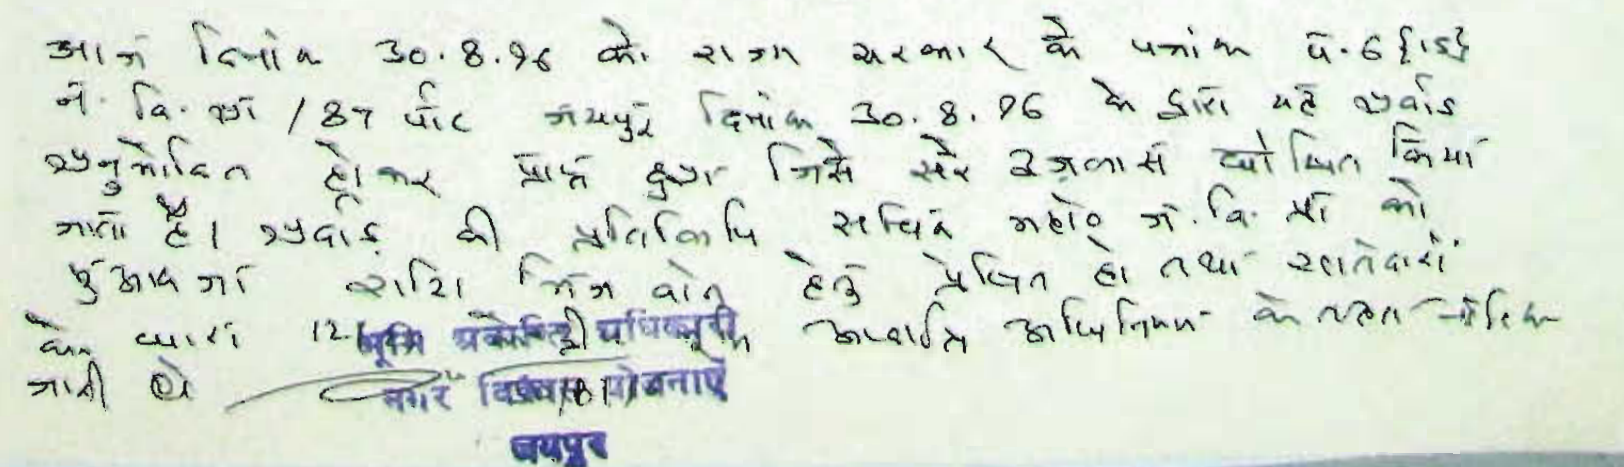 आज दिनांक 30.8.96 को राज्य सरकार के पत्रांक प.6{15}
न.वि.आ /87 पार्ट जयपुर दिनांक 30.8.96 के द्वारा यह अवार्ड
अनुमोदित होकर प्राप्त हुआ जिसे सरे इजलास घोषित किया
जाता है। अवार्ड की प्रतिलिपि सचिव महोद ज.वि.प्रा को
मुआवजा राशि हेतु प्रेषित हो तथा खातेदारों
के धारा 12 अवाप्ति अधिनियम के तहत नोटिस
जारी हो
भूमि अवाप्ति अधिकारी
नगर विकास योजनाएँ
जयपुर